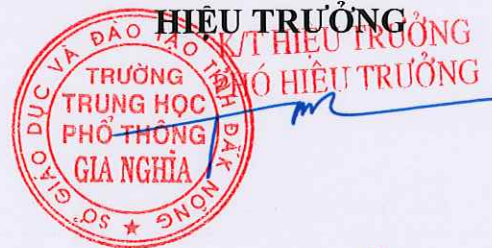 HIỆU TRƯỞNG
K/T HIỆU TRƯỞNG
PHÓ HIỆU TRƯỞNG
SỞ GIÁO DỤC VÀ ĐÀO TẠO TỈNH ĐĂK NÔNG
TRƯỜNG
TRUNG HỌC
PHỔ THÔNG
GIA NGHĨA